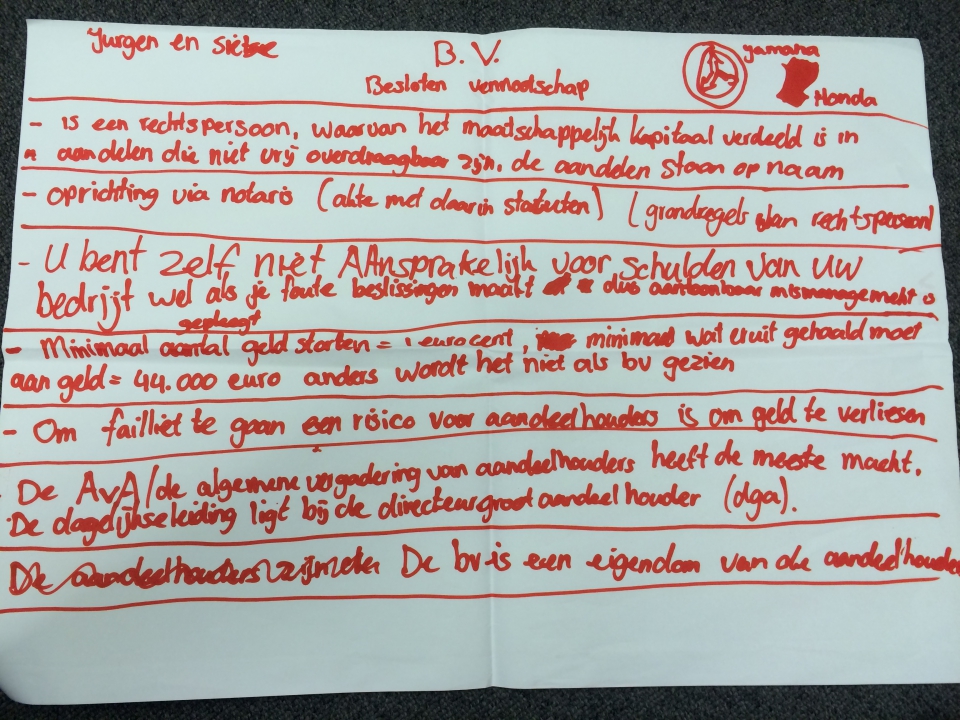 Jurgen en
B.V.
yamaha
Besloten vennootschap
Honda
- is een rechtspersoon, waarvan het maatschappelijk kapitaal verdeeld is in
aandelen die niet vrij overdraagbaar zijn. de aandelen staan op naam
- oprichting via notaris (akte met daarin statuten) (grondregels van rechtspersoon
- U bent zelf niet AAnsprakelijk voor schulden van uw
bedrijf wel als je foute beslissingen maakt dus aantoonbaar mismanagement
gepleegd
- Minimaal aantal geld starten = 1 eurocent, minimaal wat eruit gehaald moet
aan geld = 44.000 euro anders wordt het niet als bv gezien
- Om failliet te gaan een risico voor aandeelhouders is om geld te verliesen
- De AvA/de algemene vergadering van aandeelhouders heeft de meeste macht.
De dagelijkse leiding ligt bij de directeur groot aandeel houder (dga).
De bv is een eigendom van de aandeelhouder